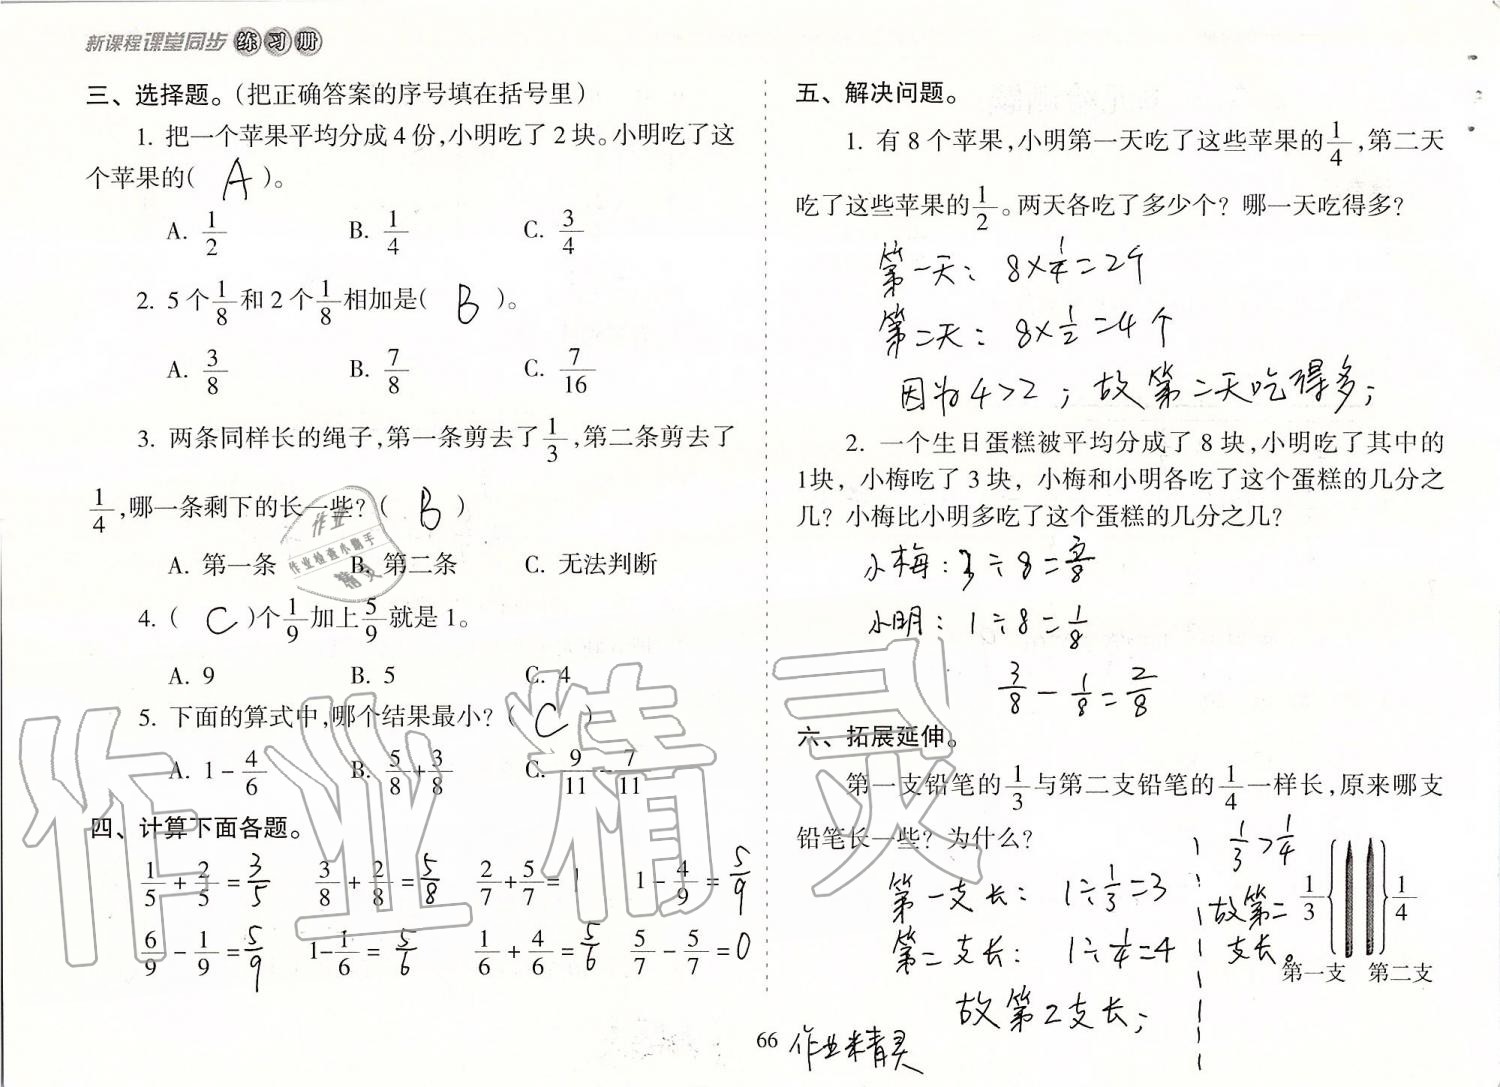 新课程课堂同步练习册
三、选择题。（把正确答案的序号填在括号里）
1. 把一个苹果平均分成4份,小明吃了2块。小明吃了这
个苹果的( A )。
A. 1/2 B. 1/4 C. 3/4
2. 5个1/8和2个1/8相加是( B )。
A. 3/8 B. 7/8 C. 7/16
3. 两条同样长的绳子,第一条剪去了1/3,第二条剪去了
1/4,哪一条剩下的长一些?( B )
A. 第一条 B. 第二条 C. 无法判断
4. ( C )个1/9加上5/9就是1。
A. 9 B. 5 C. 4
5. 下面的算式中,哪个结果最小?( C )
A. 1-4/6 B. 5/8+3/8 C. 9/11-7/11
四、计算下面各题。
1/5+2/5=3/5 3/8+2/8=5/8 2/7+5/7=1 1-4/9=5/9
6/9-1/9=5/9 1-1/6=5/6 1/6+4/6=5/6 5/7-5/7=0
五、解决问题。
1. 有8个苹果,小明第一天吃了这些苹果的1/4,第二天
吃了这些苹果的1/2。两天各吃了多少个? 哪一天吃得多?
第一天: 8×1/4=2个
第二天: 8×1/2=4个
因为4>2;故第二天吃得多;
2. 一个生日蛋糕被平均分成了8块,小明吃了其中的
1块, 小梅吃了3块, 小梅和小明各吃了这个蛋糕的几分之
几? 小梅比小明多吃了这个蛋糕的几分之几?
小梅: 3÷8=3/8
小明: 1÷8=1/8
3/8-1/8=2/8
六、拓展延伸。
第一支铅笔的1/3与第二支铅笔的1/4一样长,原来哪支
铅笔长一些? 为什么?
第一支长: 1÷1/3=3
第二支长: 1÷1/4=4
故第2支长;
1/3>1/4
故第二
支长。
1/3 1/4
第一支 第二支
66
作业精灵
作业
作业检查小帮手
精灵
作业精灵